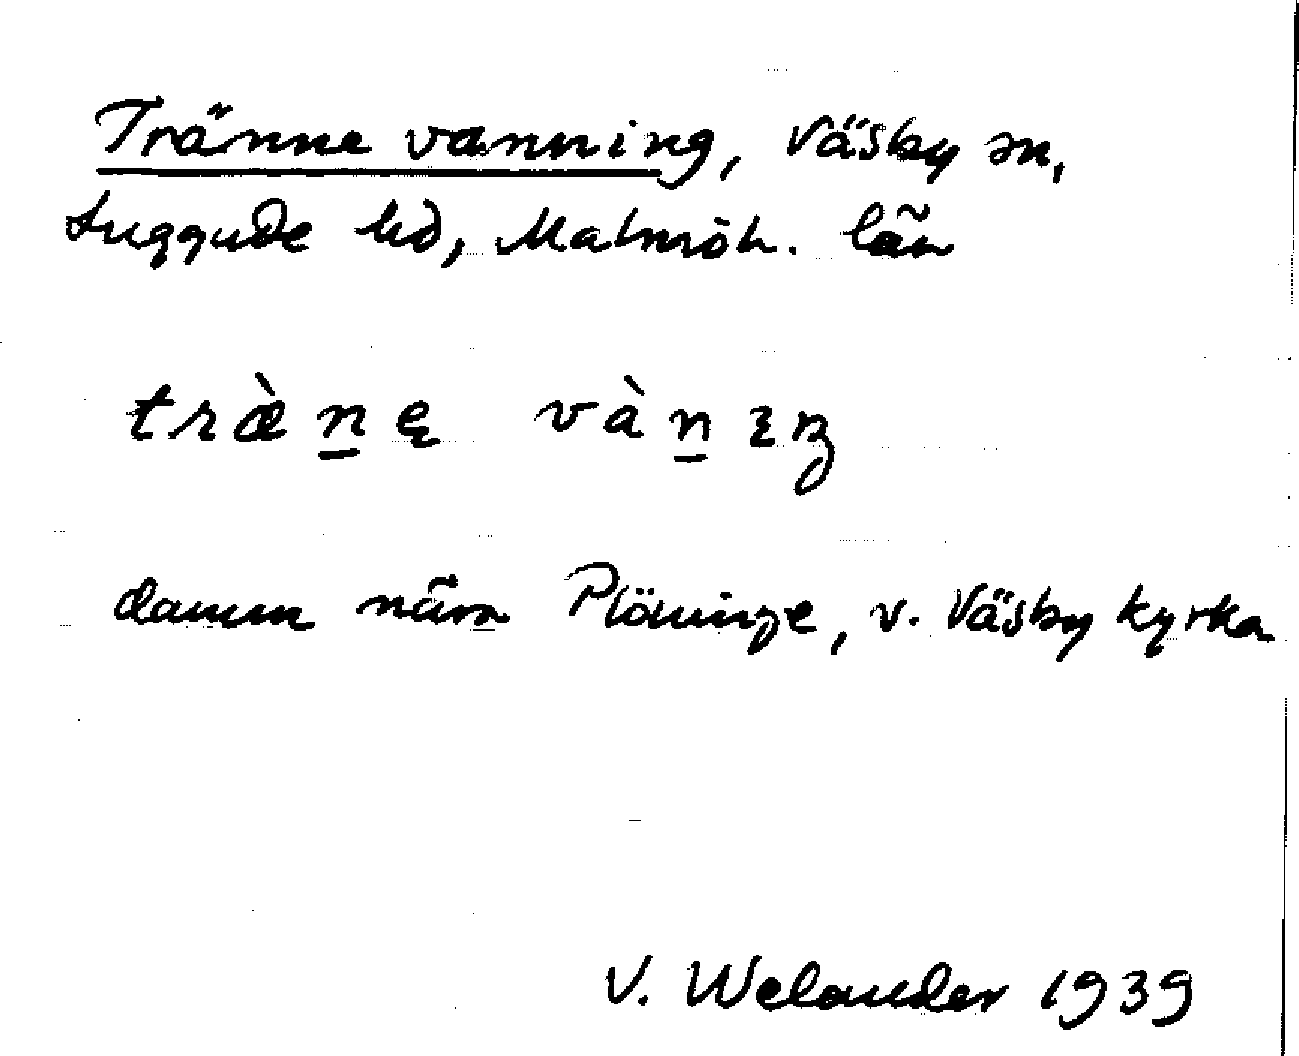 Tränne vanning, Väsby sn,
Luggude hd, Malmöh. län
træ̀n̲ę vàn̲ıŋ
damm nära Plöninge, v. Väsby kyrka
V. Welander 1939